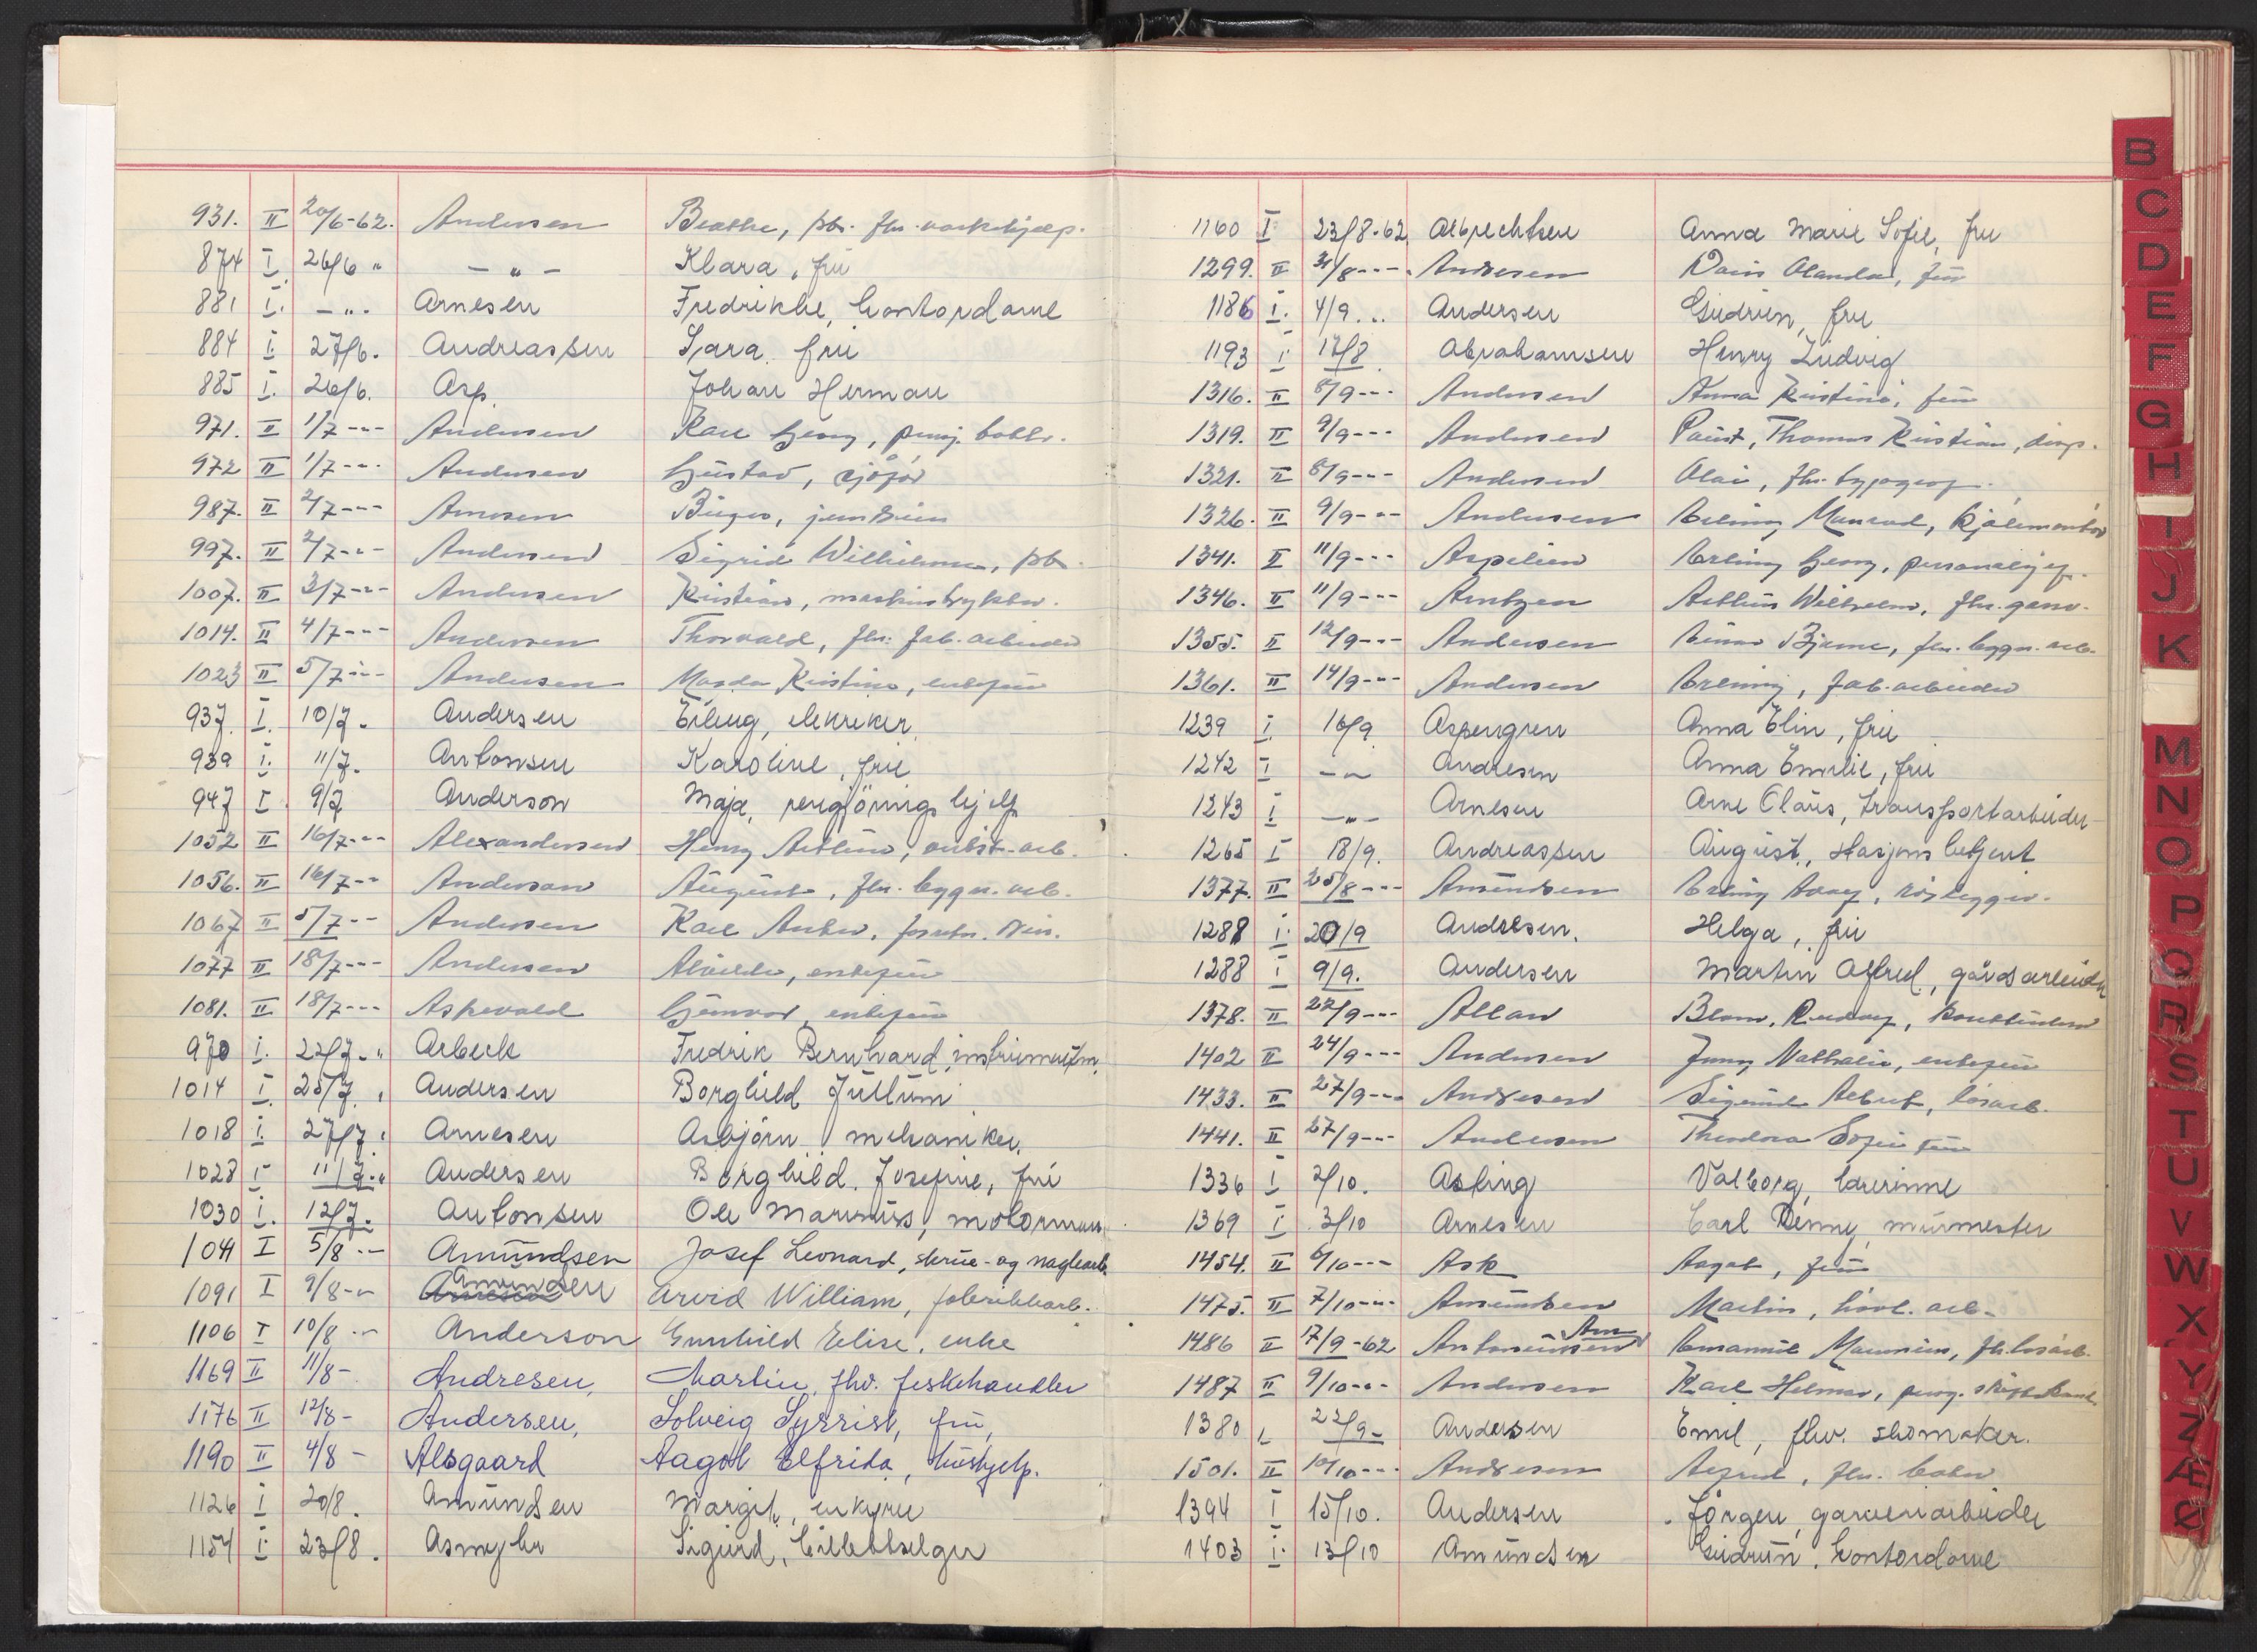 931. II 20/6-62. Andersen Beathe, fhv. vaskehjelp.
874 I 26/6 " — " — Klara, frü
881 I. — " - Arnesen Fredrikke, kontordame
884 I 27/6. Andreassen Sara frü
885 I. 26/6. Asp. Johan Herman
971. II 1/7 --- Andersen Karl Georg, pensj.
972 II 1/7 --- Andersen Güstav, sjåfør
987. II 2/7 --- Arnesen Birger,
997. II 2/7 --- Andersen Sigrid Wilhelmine,
1007. II 3/7 --- Andersen Kristian, maskintrykker.
1014. II 4/7 --- Andersen Thorvald, fhv. fab. arbeider
1023 II 5/7 --- Andersen Magda Kristine, enkefrü
937 I. 10/7. Andersen Erling,
939 I. 11/7. Antonsen Karoline, frü
947 I 9/7 Anderson Maja, rengjörings hjelp
1052 II 16/7 --- Alexandersen Henry Arthur, arb.
1056. II 16/7 -- Anderson Aügust, fhv. byggn. arb.
1067 II 5/7 -- Andersen Karl Anker,
1077 II 18/7 --- Andersen Alvilde, enkefrü
1081. II 18/7 --- Askevold Günvor, enkefrü
970 I. 22/7 - " Arbeck Fredrik Bernhard, instrümentm.
1014 I 25/7. Andersen Borghild Jüllüm
1018 I. 27/7. Arnesen Asbjörn mekaniker,
1028 I 11/7. " Andersen Borghild Josefine, frü
1030 I. 12/7. Antonsen Ole Marinüs, motormann
1041 I 5/8 -- Amündsen Josef Leonard, skrüe- og naglearb.
1091 I 9/8 -- Amundsen Arvid William, fabrikkarb.
1106 I 10/8 -- Anderson Gunhild Elise, enke
1169 II 11/8 - Andresen, Martin, fhv. fiskehandler
1176 II 12/8 - Andersen, Solveig Syrrist, frü,
1190 II 4/8 - Alsgaard Aagot Elfrida, hüshjelp.
1126 I 20/8. Amündsen Margit, enkefrü
1154 I 23/8. Asmyhr Sigürd, billettselger
1160 I 23/8-62 Albrechtsen Anna Marie Sofie, frü
1299. II 31/8 --- Andresen Olanda, frü
1186 I. 4/9 .. Andersen Güdrün, frü
1193 I 17/8 Abrahamsen Henry Lüdvig
1316. II 8/9 --- Andersen Anna Kristine, frü
1319. II 9/9 --- Andersen Paüst, Thomas Kristian, disp.
1321. II 8/9 --- Andersen Olai, fhv. typograf.
1326. II 9/9 --- Andersen Erling Manrad,
1341. II 11/9 --- Aspelien Erling Georg, personalsjef.
1346. II 11/9 --- Arntzen Arthür Wilhelm, fhv.
1355. II 12/9 --- Andersen Einar Bjarne, fhv. byggn. arb.
1361. II 14/9 --- Andersen Erling, fab. arbeider
1239 I 16/9 Aspengren Anna Elin, frü
1242 I — " Andresen Anna Emilie, frü
1243 I — " — Arnesen Arne Claüs, transportarbeider
1265 I 18/9. Andreassen Aügüst, stasjons betjent
1377. II 25/8 --- Amündsen Erling Aarög, rörlegger.
1288 I. 20/9 Andresen. Helga, frü
1288 I 9/9. Andersen Martin Alfred, gårdsarbeider
1378. II 22/9 --- Allan Blom, Rudolf,
1402 II 24/9 --- Andersen Jenny Nathalie, enkefrü
1433. II 27/9 --- Andresen Sigürd Albert, lösarb.
1441. II 27/9 --- Andersen Theodora Sofie frü
1336 I 2/10. Asling Valborg, lærerinne
1369 I 3/10 Arnesen Carl Denny, mürmester
1454. II 6/10 --- Ask Aagot, frü
1475. II 7/10 --- Amündsen Martin, arb.
1486 II 17/9-62 Emanüel fhv. lösarb.
1487 II 9/10 --- Andersen Karl Hilmar, pensj.
1380 I 22/9 - Andersen Emil, fhv. skomaker.
1501. II 10/10 --- Andresen Alfred, fhv.
1394 I 15/10. Andersen Jörgen, garveriarbeider
1403 I. 13/10 Amündsen Güdrün, kontordame
B
C
D
E
F
G
H
I
J
K
M
N
O
P
Q
R
S
T
U
V
W
X
Y
Z
Æ
Ø